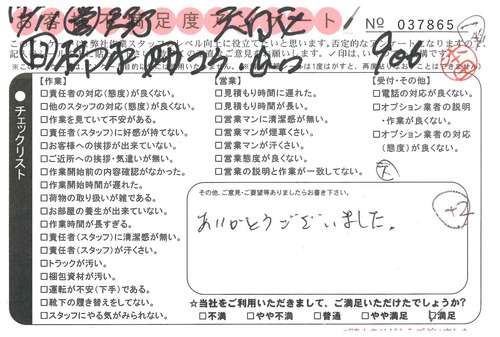 お客様満足度アンケート
No 037865
このアンケートは弊社作業スタッフのレベル向上に役立てたいと思います。
チェックリスト
【作業】
□責任者の対応(態度)が良くない。
□他のスタッフの対応(態度)が良くない。
□作業を見ていて不安がある。
□責任者(スタッフ)に好感が持てない。
□お客様への挨拶が出来ていない。
□ご近所への挨拶・気遣いが無い。
□作業開始前の内容確認がなかった。
□作業開始時間が遅れた。
□荷物の取り扱いが雑である。
□お部屋の養生が出来ていない。
□作業時間が長すぎる。
□責任者(スタッフ)に清潔感が無い。
□責任者(スタッフ)が汗くさい。
□トラックが汚い。
□梱包資材が汚い。
□運転が不安(下手)である。
□靴下の履き替えをしてない。
□スタッフにやる気がみられない。
【営業】
□見積もり時間に遅れた。
□見積もり時間が長い。
□営業マンに清潔感が無い。
□営業マンが煙草くさい。
□営業マンが汗くさい。
□営業態度が良くない。
□営業の説明と作業が一致してない。
【受付・その他】
□電話の対応が良くない。
□オプション業者の説明
・作業が良くない。
□オプション業者の対応
(態度)が良くない。
その他、ご意見・ご要望等ありましたらお書き下さい。
ありがとうございました。
+2
☆当社をご利用いただきまして、ご満足いただけたでしょうか?
□不満 □やや不満 □普通 □やや満足 □満足